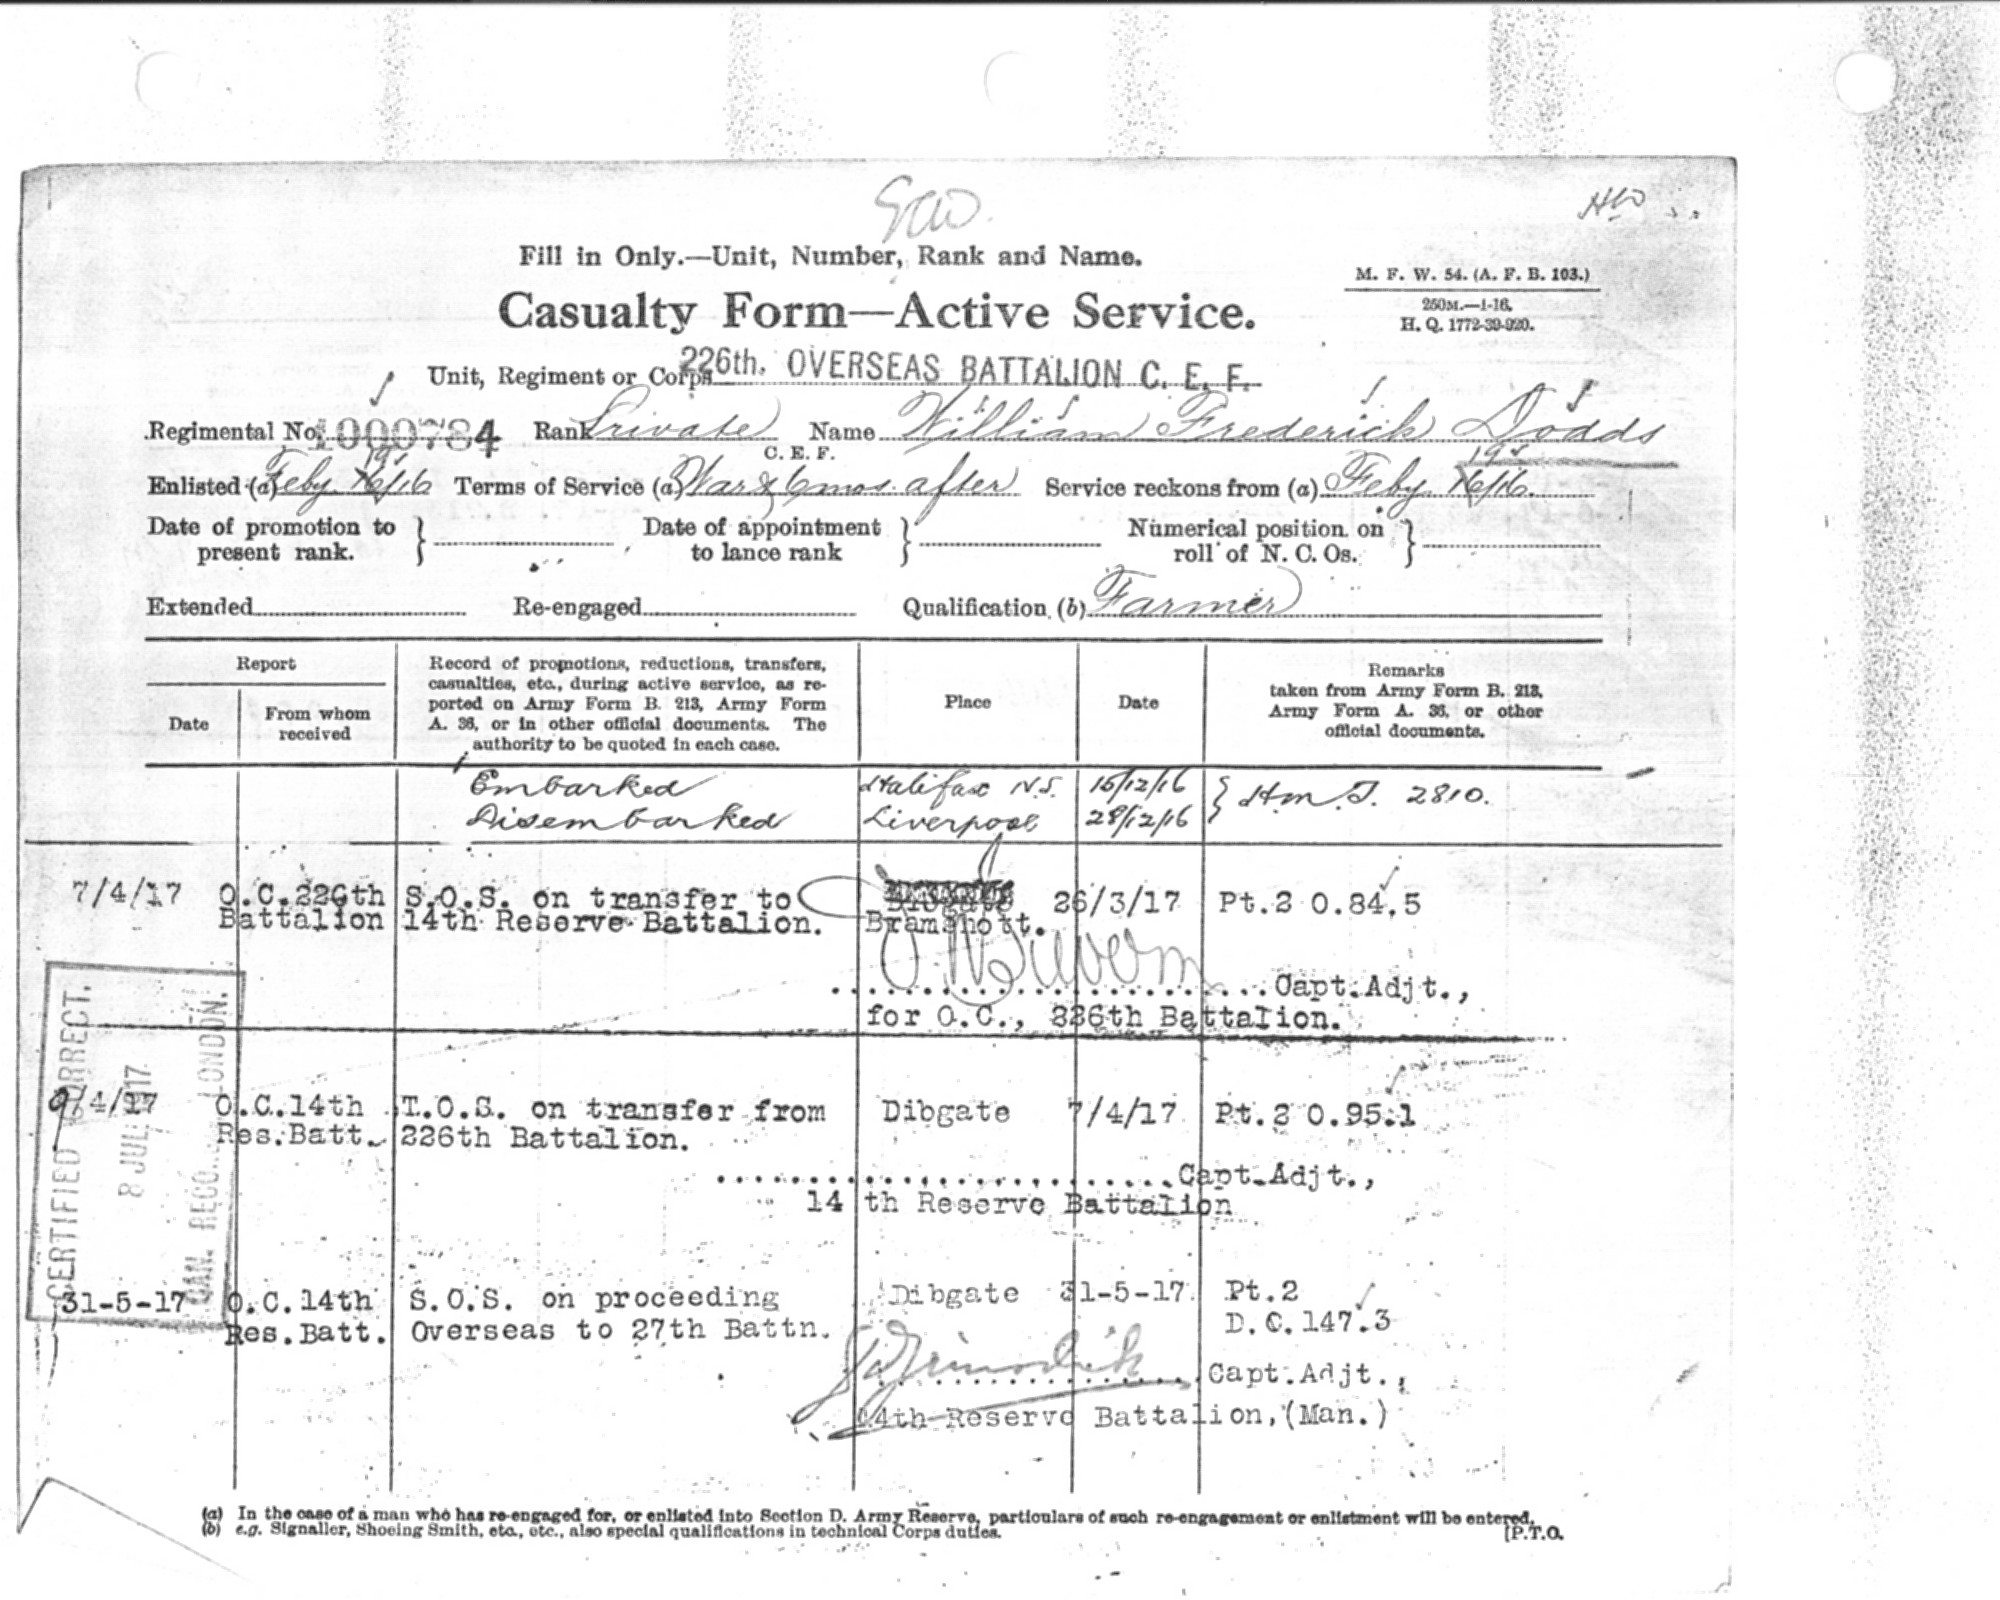 Fill in Only.—Unit, Number, Rank and Name.
M. F. W. 54. (A. F. B. 103.)
250M.—1-16.
H. Q. 1772-39-920.
Casualty Form—Active Service.
Unit, Regiment or Corps 226th. OVERSEAS BATTALION C. E. F.
Regimental No. 1000784 Rank Private Name William Frederick Dodds
C. E. F.
Enlisted (a) Feby 16/16 Terms of Service (a) War & 6 mos. after Service reckons from (a) Feby. 16/16.
Date of promotion to present rank. Date of appointment to lance rank Numerical position on roll of N. C. Os.
Extended Re-engaged Qualification (b) Farmer
Report
Date
From whom received
Record of promotions, reductions, transfers,
casualties, etc., during active service, as re-
ported on Army Form B. 213, Army Form
A. 36, or in other official documents. The
authority to be quoted in each case.
Place
Date
Remarks
taken from Army Form B. 213,
Army Form A. 36, or other
official documents.
Embarked Halifax N.S. 15/12/16
Disembarked Liverpool 28/12/16
2810.
7/4/17 O.C.226th S.O.S. on transfer to 26/3/17 Pt.2 O.84.5
Battalion 14th Reserve Battalion. Bramshott.
Capt.Adjt.,
for O.C., 226th Battalion.
9/4/17 O.C.14th T.O.S. on transfer from Dibgate 7/4/17 Pt.2 O.95.1
Res.Batt. 226th Battalion.
Capt.Adjt.,
14 th Reserve Battalion
CERTIFIED CORRECT.
8 JUL 1917
CAN. RECO LONDON.
31-5-17 O.C.14th S.O.S. on proceeding Dibgate 31-5-17 Pt.2
Res.Batt. Overseas to 27th Battn. D.C.147.3
Capt.Adjt.,
14th Reserve Battalion,(Man.)
(a) In the case of a man who has re-engaged for, or enlisted into Section D. Army Reserve, particulars of such re-engagement or enlistment will be entered.
(b) e.g. Signaller, Shoeing Smith, etc., etc., also special qualifications in technical Corps duties.
[P.T.O.